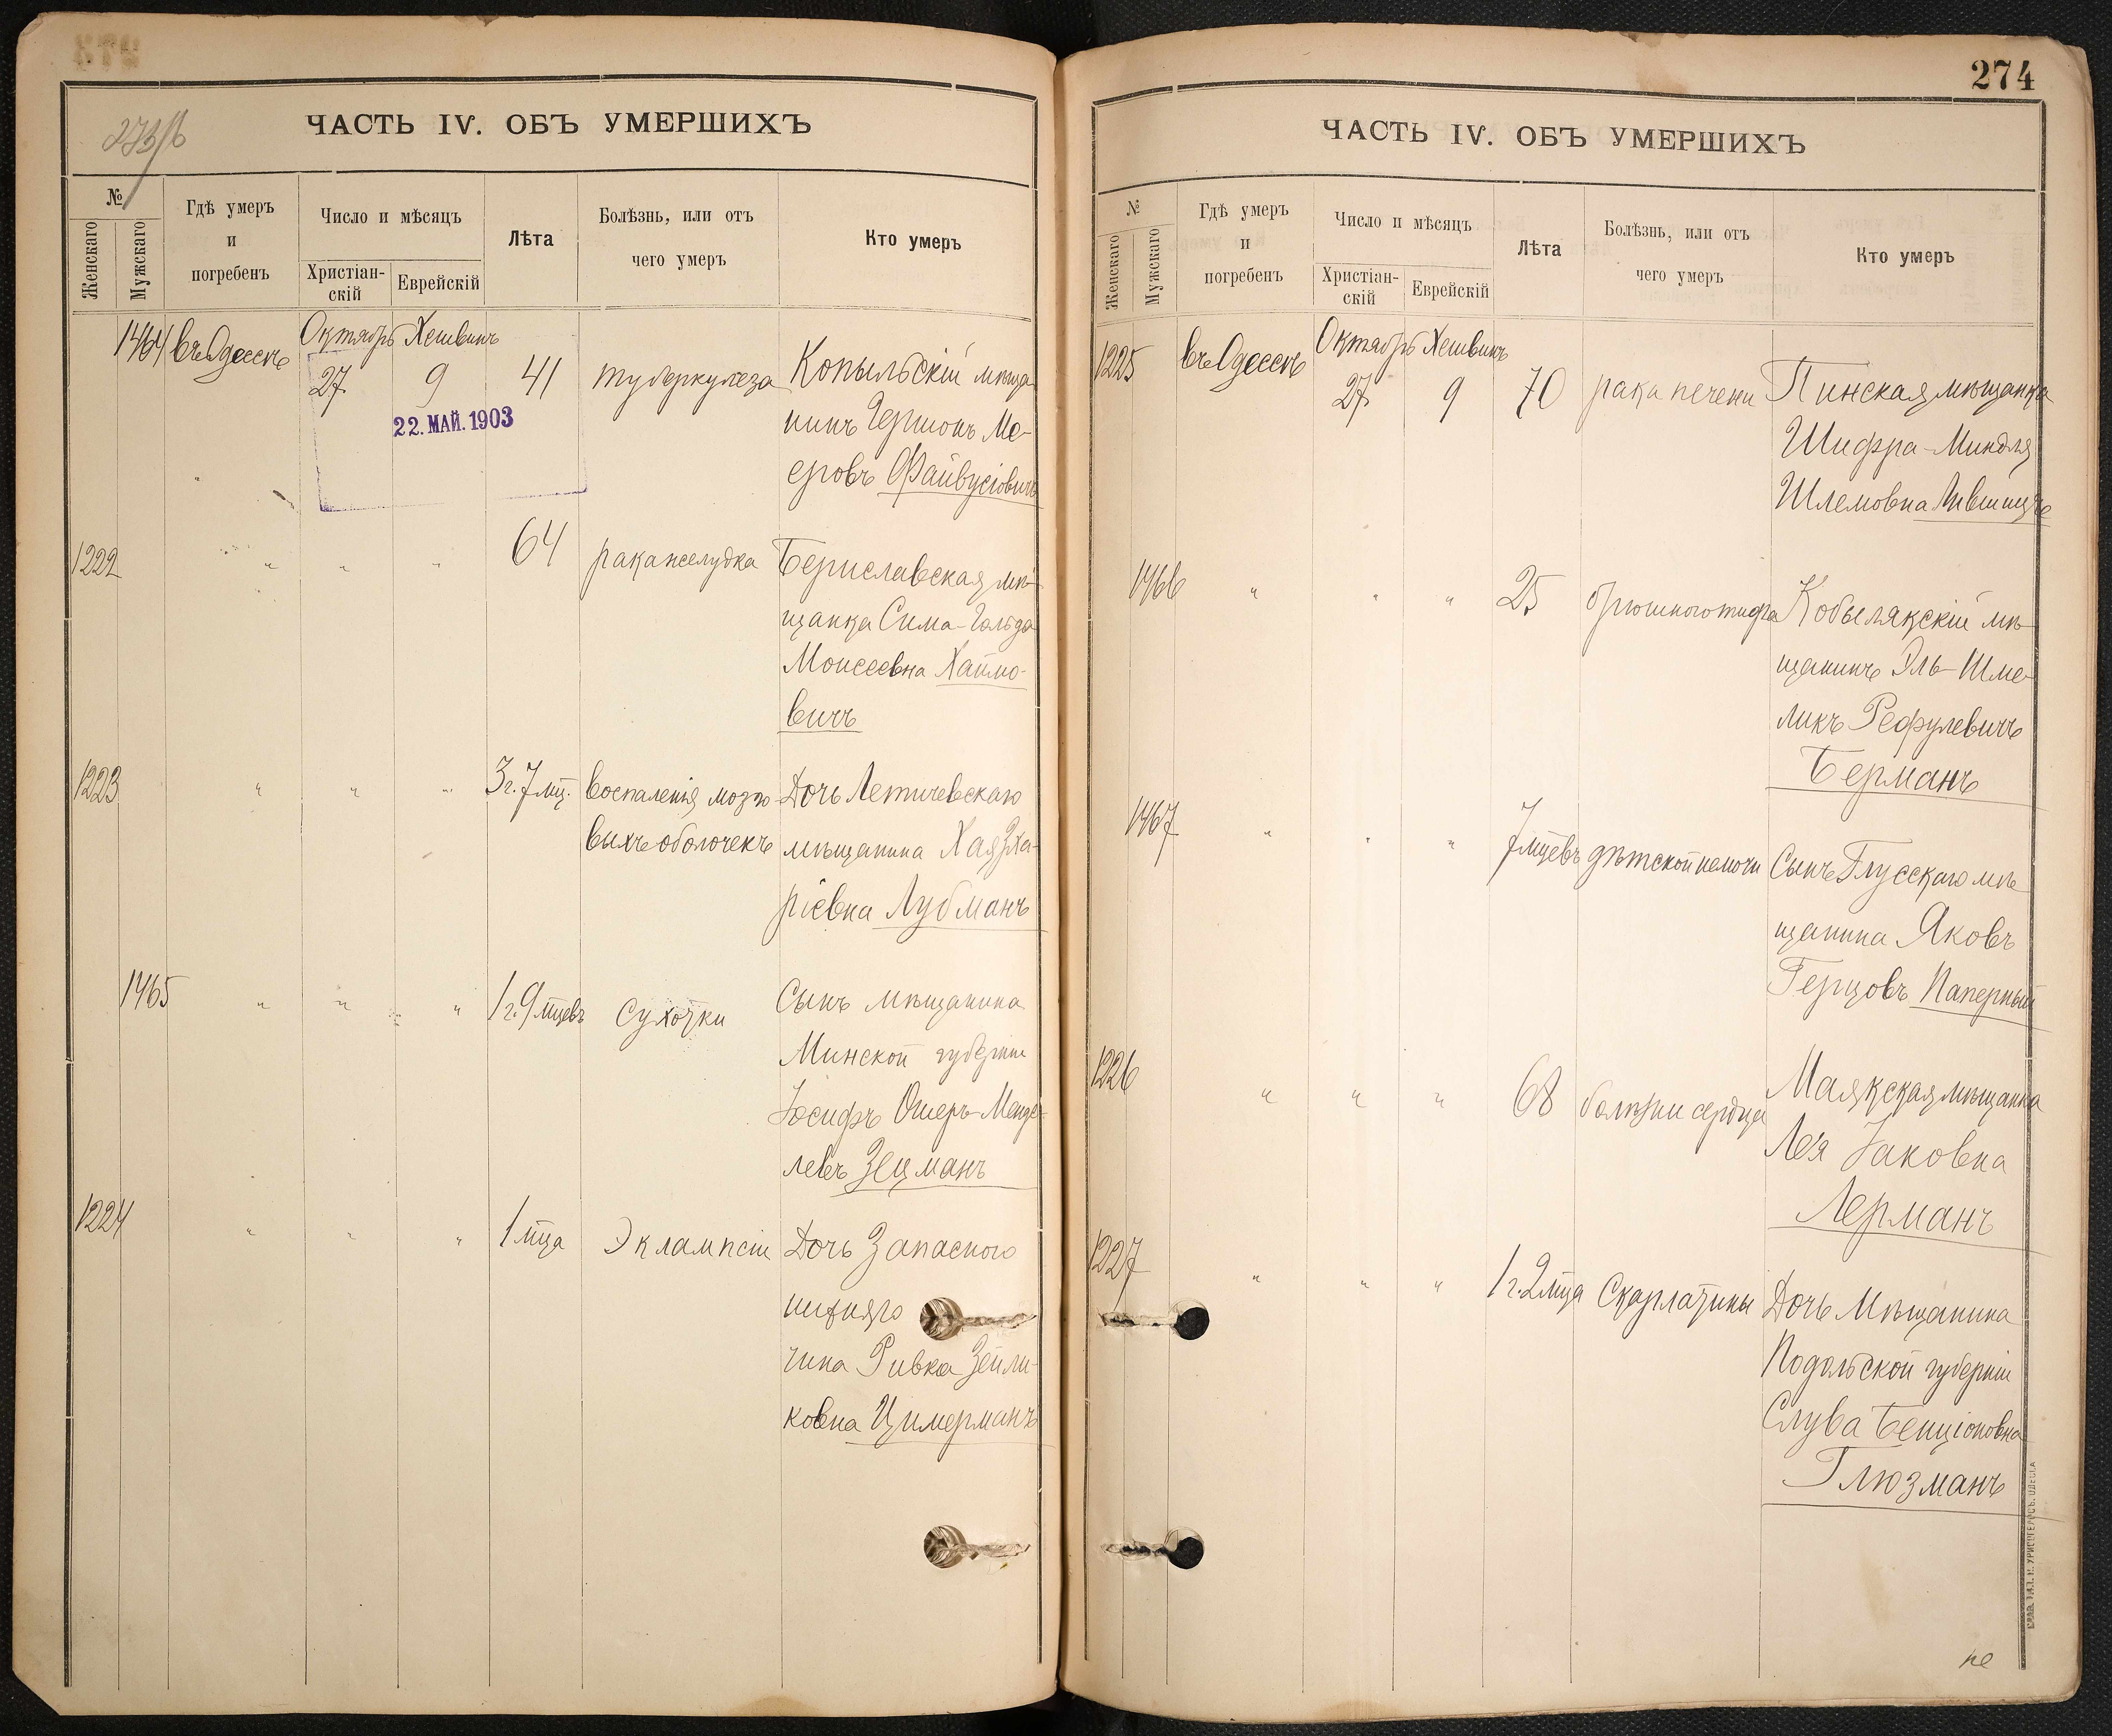 ЧАСТЬ IV. ОБЪ УМЕРШИХЪ
№
Женскаго
Мужскаго
Гдѣ умеръ
и
погребенъ
Число и мѣсяцъ
Христіан-
скій
Еврейскій
Лѣта
Болѣзнь, или отъ
чего умеръ
Кто умеръ
1464 въ Одессѣ Октябрь Хешвинъ
27 9 41 туберкулеза Копыльскій мѣща
22. МАЙ. 1903
нинъ Гершонъ Ме-
еровъ Файвусіовичъ
1222 " " " 64 рака желудка Бериславская мѣ-
щанка Сима-Гольда
Моисеевна Хаимо-
вичъ
1223 " " " 3 г. 7 мц. воспаленія мозго- Дочь Летичевскаго
выхъ оболочекъ мѣщанина Хая Зха-
ріевна Лубманъ
1465 " " " 1 г. 9 мцевъ Сухотки Сынъ мѣщанина
Минской губерніи
Іосифъ Ошеръ-Менде-
левъ Зецманъ
1224 " " " 1 мца Эклампсіи Дочь Запаснаго
нижняго
чина Ривка Зейли-
ковна Цимерманъ
274
ЧАСТЬ IV. ОБЪ УМЕРШИХЪ
№
Женскаго
Мужскаго
Гдѣ умеръ
и
погребенъ
Число и мѣсяцъ
Христіан-
скій
Еврейскій
Лѣта
Болѣзнь, или отъ
чего умеръ
Кто умеръ
1225 въ Одессѣ Октябрь Хешвинъ
27 9 70 рака печени Пинская мѣщанка
Шифра-Миндля
Шлемовна Лившицъ
1466 " " " 25 брюшного тифа Кобелякскій мѣ-
щанинъ Эль-Шме-
ликъ Рефулевичъ
Берманъ
1467 " " " 7 мцевъ дѣтской немочи Сынъ Глусскаго мѣ-
щанина Яковъ
Герцовъ Паперный
1226 " " " 68 болѣзни сердца Маякская мѣщанка
Лея Іаковна
Лерманъ
1227 " " " 1 г. 2 мца Скарлатины Дочь Мѣщанина
Подольской губерніи
Слува Бенціоновна
Глюзманъ